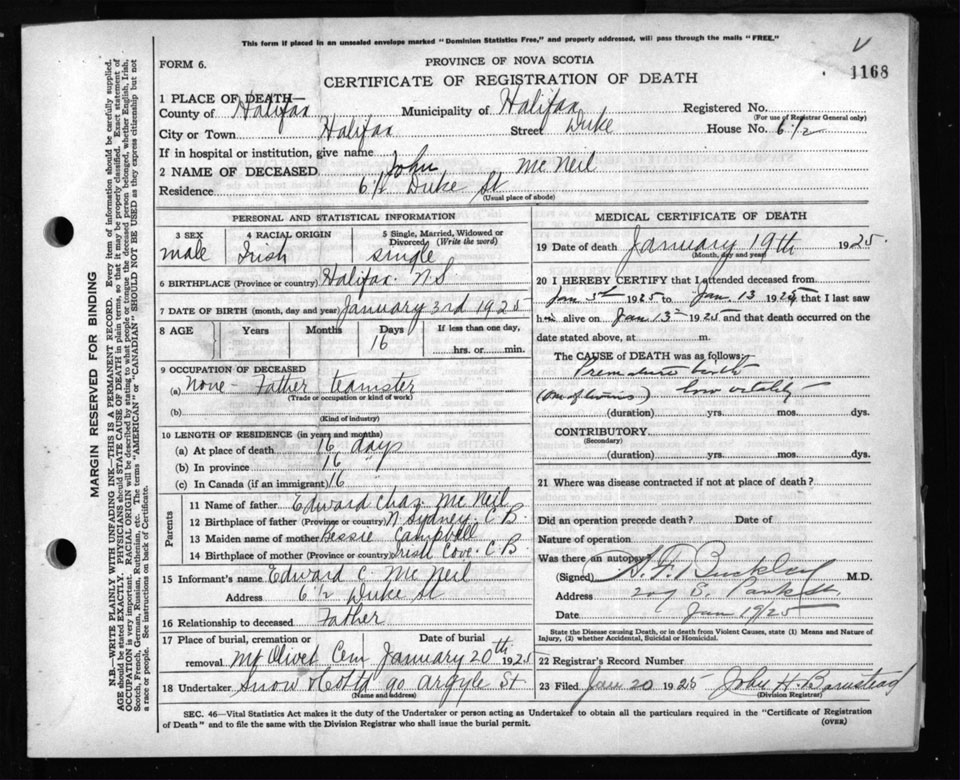 This form if placed in an unsealed envelope marked "Dominion Statistics Free," and properly addressed, will pass through the mails "FREE."
V
1168
FORM 6.
PROVINCE OF NOVA SCOTIA
CERTIFICATE OF REGISTRATION OF DEATH
1 PLACE OF DEATH—
County of Halifax Municipality of Halifax Registered No.
(For use of Registrar General only)
City or Town Halifax Street Duke House No. 6½
If in hospital or institution, give name
2 NAME OF DECEASED John McNeil
Residence 6½ Duke St
(Usual place of abode)
PERSONAL AND STATISTICAL INFORMATION
3 SEX male
4 RACIAL ORIGIN Irish
5 Single, Married, Widowed or Divorced (Write the word) single
6 BIRTHPLACE (Province or country) Halifax N.S.
7 DATE OF BIRTH (month, day and year) January 3rd 1925
8 AGE Years Months Days 16 If less than one day, hrs. or min.
9 OCCUPATION OF DECEASED
(a) None - Father teamster
(Trade or occupation or kind of work)
(b)
(Kind of industry)
10 LENGTH OF RESIDENCE (in years and months)
(a) At place of death 16 days
(b) In province 16 "
(c) In Canada (if an immigrant) 16
Parents
11 Name of father Edward Chas. McNeil
12 Birthplace of father (Province or country) N Sydney, C.B.
13 Maiden name of mother Bessie Campbell
14 Birthplace of mother (Province or country) Irish Cove. C.B
15 Informant's name Edward C McNeil
Address 6½ Duke St
16 Relationship to deceased Father
17 Place of burial, cremation or removal Mt Olivet Cem Date of burial January 20th 1925
18 Undertaker Snow & Co Ltd 90 Argyle St
(Name and address)
MEDICAL CERTIFICATE OF DEATH
19 Date of death January 19th 1925.
(Month, day and year)
20 I HEREBY CERTIFY that I attended deceased from
Jan 5th 1925 to Jan 13 1925, that I last saw
him alive on Jan 13 1925 and that death occurred on the
date stated above, at m.
The CAUSE OF DEATH was as follows:
Premature birth
(One of twins) low vitality
(duration) yrs. mos. dys.
CONTRIBUTORY
(Secondary)
(duration) yrs. mos. dys.
21 Where was disease contracted if not at place of death?
Did an operation precede death? Date of
Nature of operation
Was there an autopsy
(Signed) Buckley M.D.
Address 207 S. Park St.
Date Jan 19/25
State the Disease causing Death, or in death from Violent Causes, state (1) Means and Nature of
Injury, (2) whether Accidental, Suicidal or Homicidal.
22 Registrar's Record Number
23 Filed Jan 20 1925 John H. Barnstead
(Division Registrar)
SEC. 46—Vital Statistics Act makes it the duty of the Undertaker or person acting as Undertaker to obtain all the particulars required in the "Certificate of Registration
of Death" and to file the same with the Division Registrar who shall issue the burial permit.
(OVER)
MARGIN RESERVED FOR BINDING
N.B.—WRITE PLAINLY WITH UNFADING INK—THIS IS A PERMANENT RECORD. Every item of information should be carefully supplied.
AGE should be stated EXACTLY. PHYSICIANS should STATE CAUSE OF DEATH in plain terms, so that it may be properly classified. Exact statement of
OCCUPATION is very important. RACIAL ORIGIN will be described by stating to what people or tongue the deceased person belonged, whether English, Irish,
Scotch, French, German, Russian, Ruthenian, etc. The terms "AMERICAN" or "CANADIAN" SHOULD NOT BE USED as they express citizenship but not
a race or people. See instructions on back of Certificate.